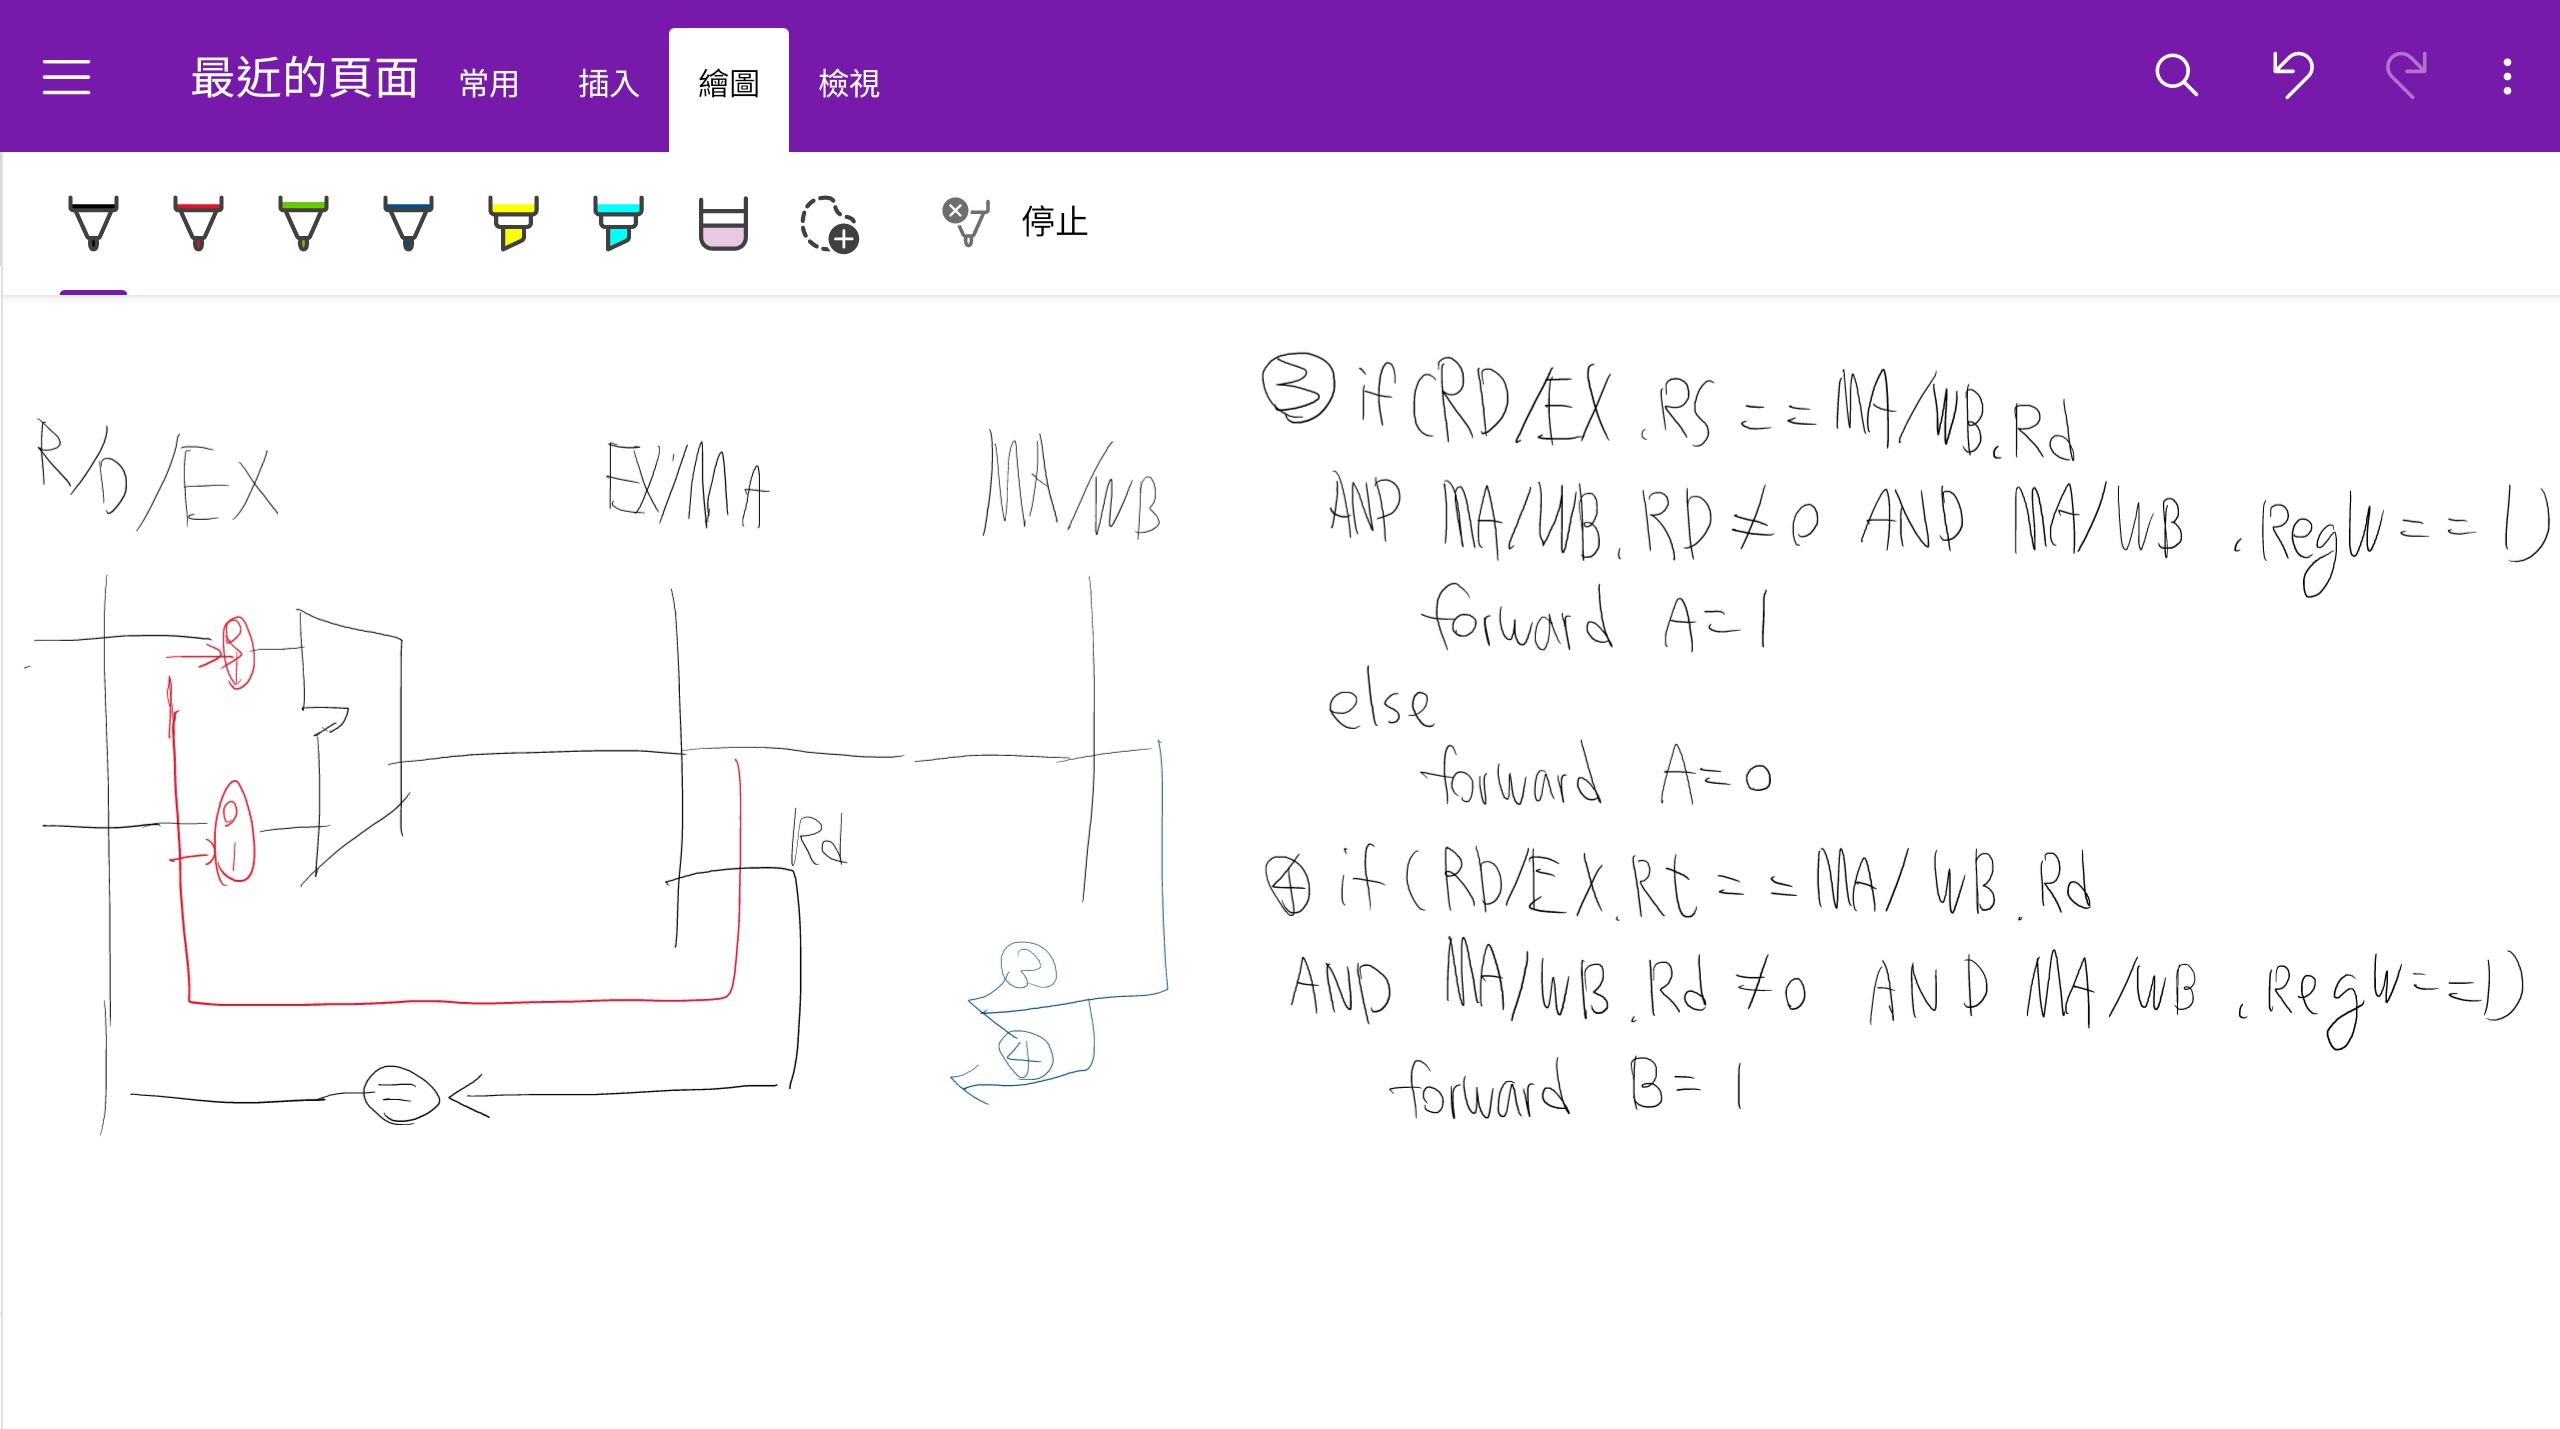 最近的頁面 常用 插入 繪圖 檢視
停止
R/D/EX EX/MA MA/WB
0
1
0
1
Rd
2
4
=
③ if (RD/EX.RS == MA/WB.Rd
AND MA/WB.RD ≠ 0 AND MA/WB.RegW == 1)
forward A=1
else
forward A=0
④ if (RD/EX.Rt == MA/WB.Rd
AND MA/WB.Rd ≠ 0 AND MA/WB.RegW==1)
forward B=1